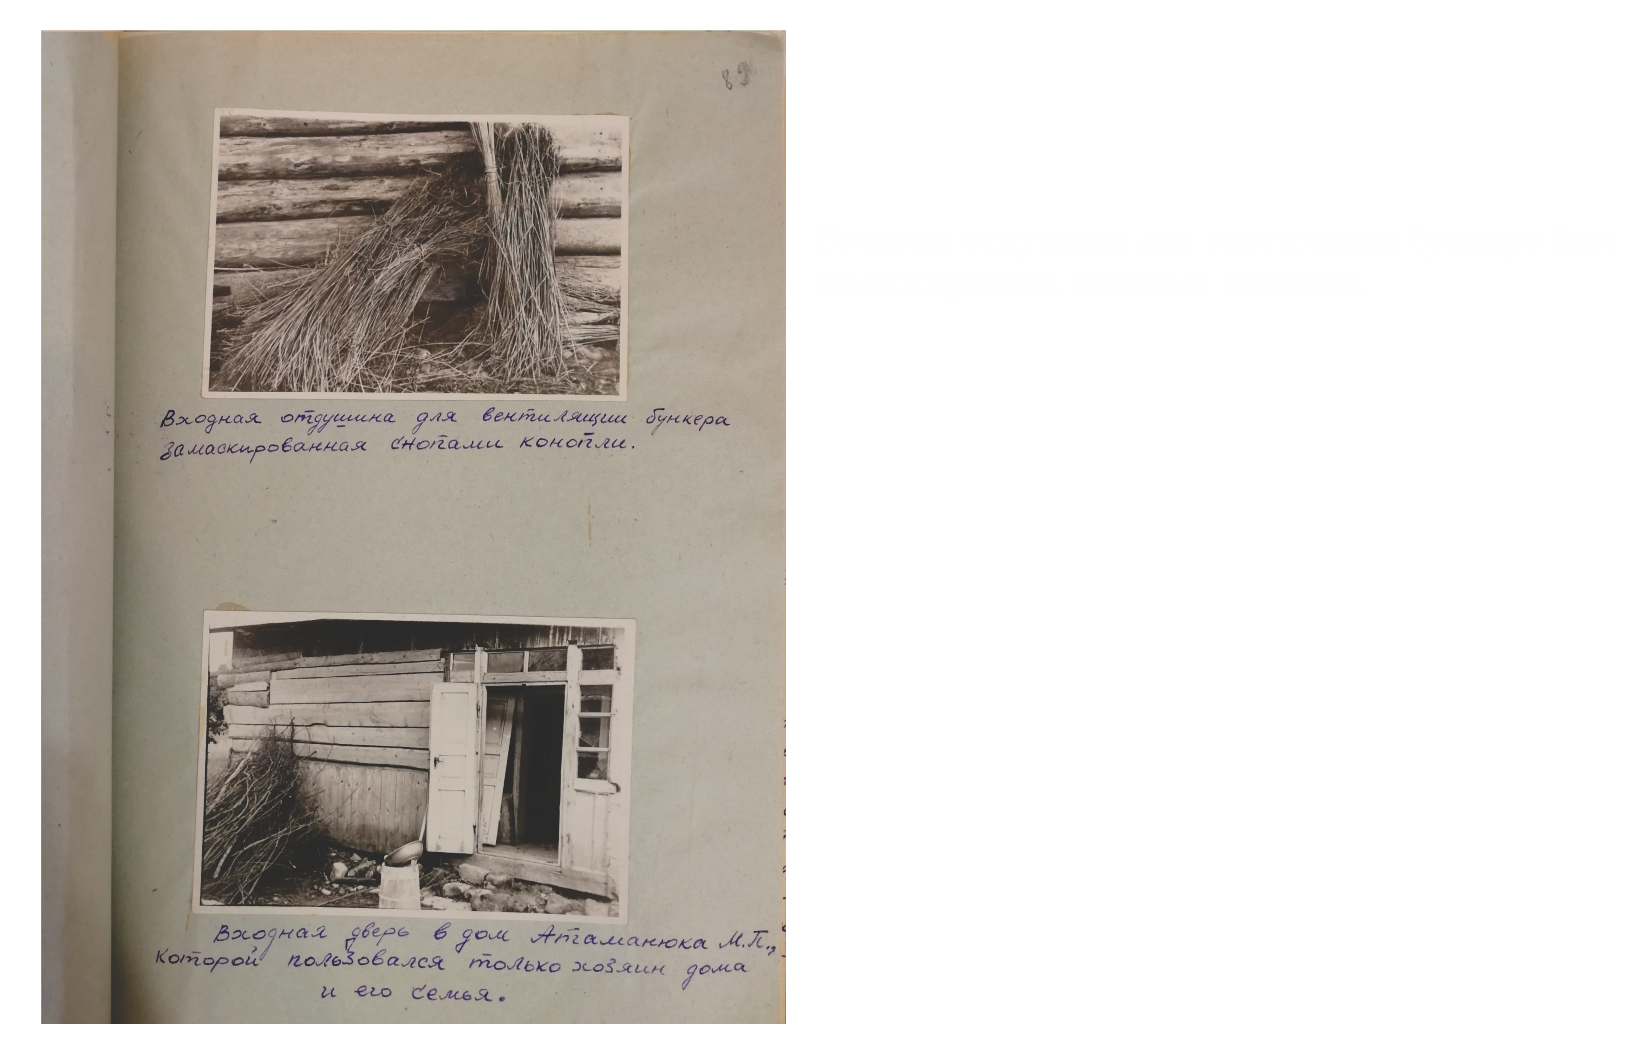 89
Входная отдушина для вентиляции бункера
замаскированная снопами конопли.
Входная дверь в дом Атаманюка М.П.,
которой пользовался только хозяин дома
и его семья.